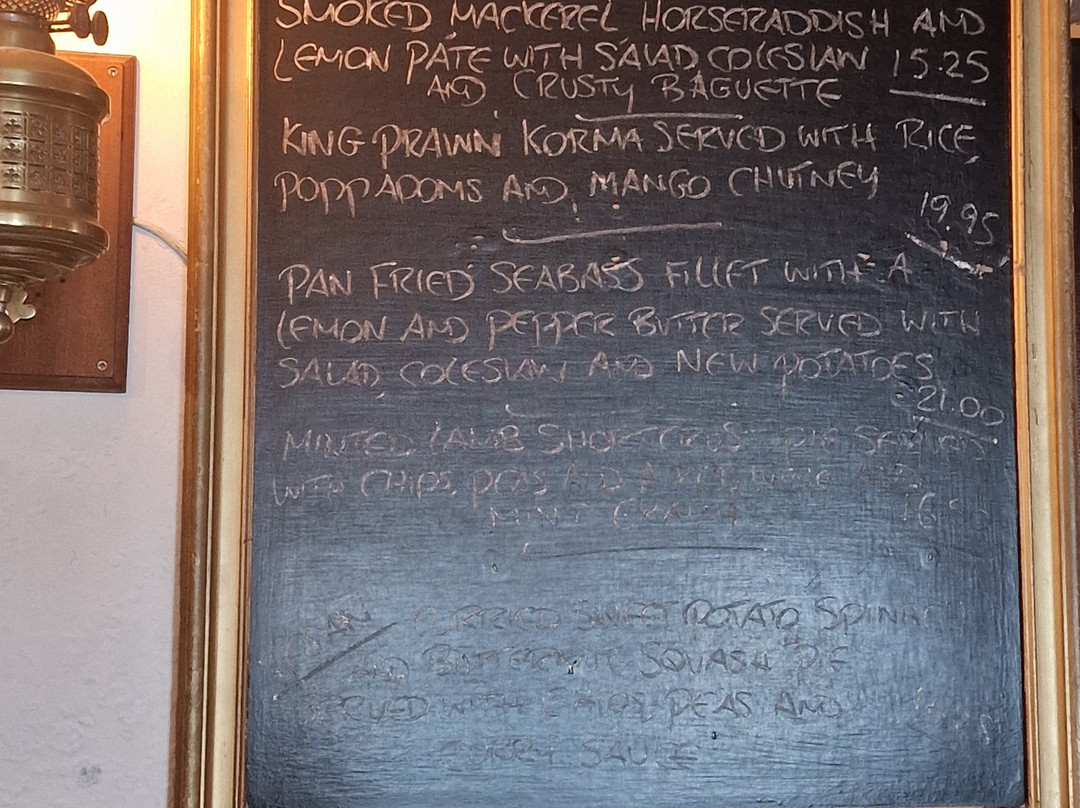 SMOKED MACKEREL HORSERADDISH AND
LEMON PATE WITH SALAD COLESLAW 15.25
AND CRUSTY BAGUETTE
KING PRAWN KORMA SERVED WITH RICE,
POPPADOMS AND MANGO CHUTNEY
19.95
PAN FRIED SEABASS FILLET WITH A
LEMON AND PEPPER BUTTER SERVED WITH
SALAD, COLESLAW AND NEW POTATOES
21.00
MINTED LAMB SHORTCRUST PIE SERVED
WITH CHIPS, PEAS AND A
MINT GRAVY
CURRIED SWEET POTATO SPINACH
AND BUTTERNUT SQUASH PIE
SERVED WITH CHIPS PEAS AND
CURRY SAUCE